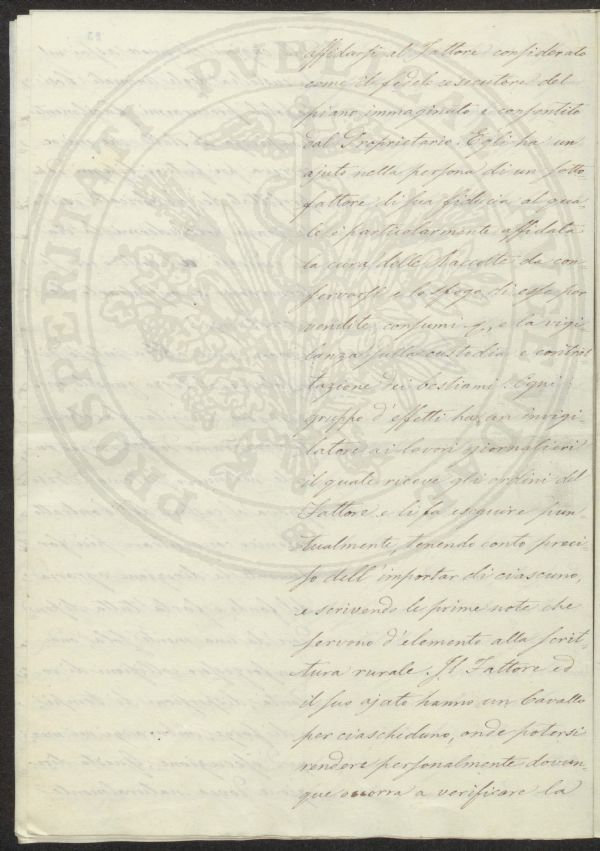 affidarsi al Fattore considerato
come il fedele esecutore del
piano immaginato e consentito
dal Proprietario. Egli ha un
ajuto nella persona di un sotto-
fattore di sua fiducia al qua-
le è particolarmente affidata
la cura delle Raccolte da con-
servarsi e lo sfogo di esse per
vendite, consumi, e la vigi-
lanza sulla custodia e contrat
tazione dei bestiami. Ogni
gruppo d'effetti ha un invigi-
latore ai lavori giornalieri
il quale riceve gli ordini del
Fattore e li fa eseguire pun-
tualmente, tenendo conto preci-
so dell'importar di ciascuno,
e scrivendo le prime note che
servono d'elemento alla scrit-
tura rurale. Il Fattore ed
il suo ajuto hanno un Cavallo
per ciascheduno, onde potersi
rendere personalmente dovun-
que occorra a verificare la
PROSPERITATI PVBLICAE